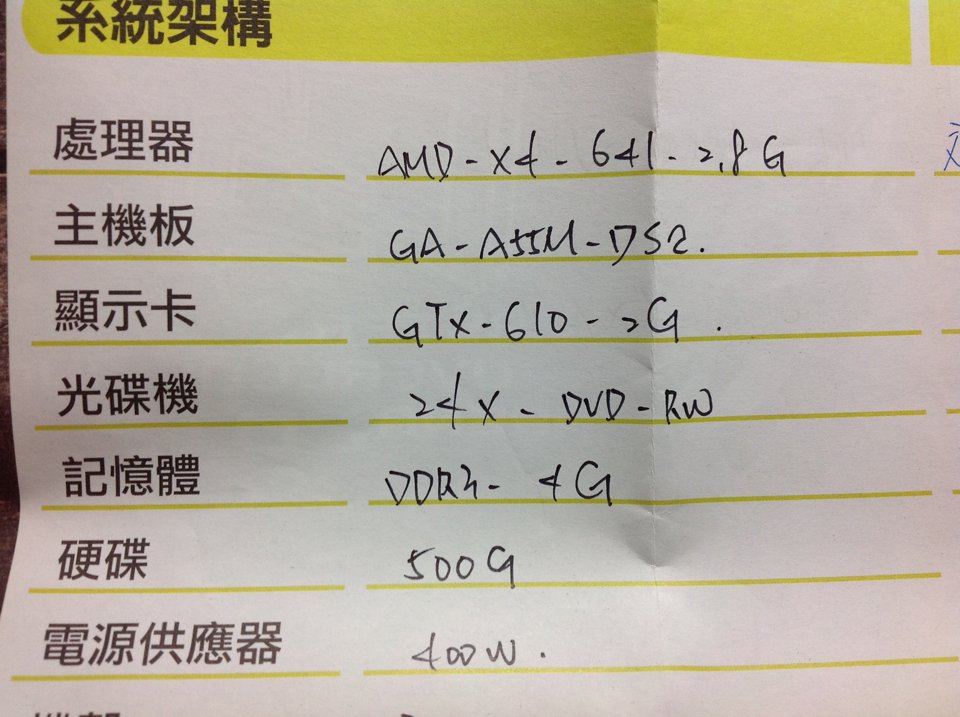 系統架構
處理器 AMD-X4-641-2.8G
主機板 GA-A55M-DS2.
顯示卡 GTX-610-2G.
光碟機 24X-DVD-RW
記憶體 DDR3-4G
硬碟 500G
電源供應器 400W.